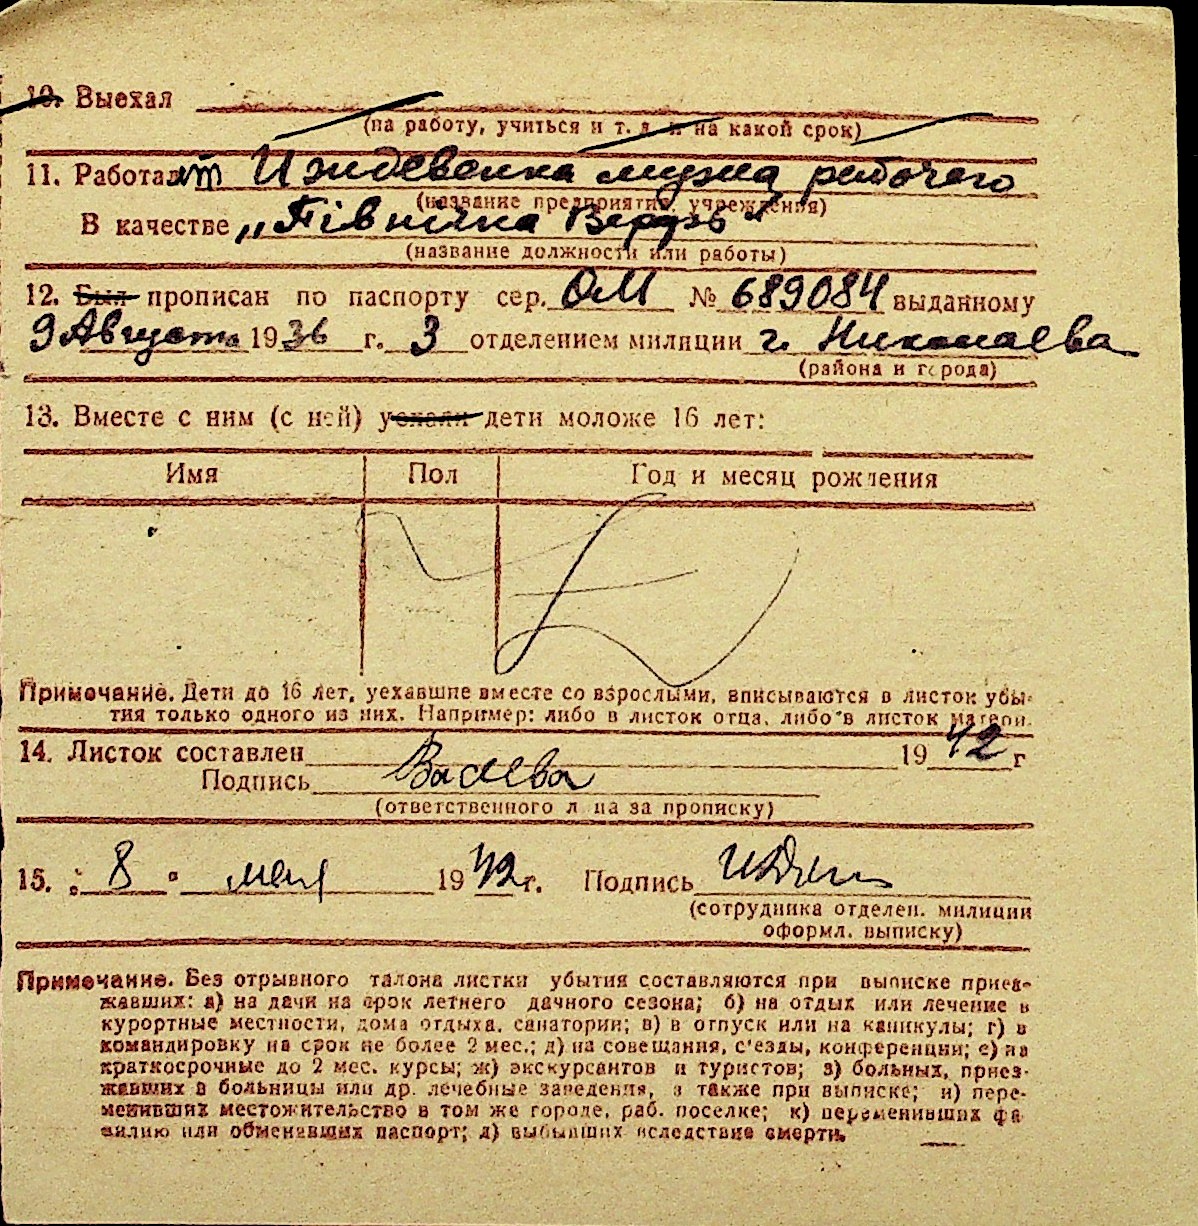 10. Выехал
(на работу, учиться и т. д. и на какой срок)
11. Работает Иждевенка мужа рабочего
(название предприятия, учреждения)
В качестве „Північна Вердзь“
(название должности или работы)
12. Был прописан по паспорту сер. ОМ № 689084 выданному
9 Августа 1936 г. 3 отделением милиции г. Николаева
(района и города)
13. Вместе с ним (с ней) уехали дети моложе 16 лет:
Имя Пол Год и месяц рождения
Примечание. Дети до 16 лет, уехавшие вместе со взрослыми, вписываются в листок убы-
тия только одного из них. Например: либо в листок отца, либо в листок матери.
14. Листок составлен 1942 г
Подпись
(ответственного лица за прописку)
15. „8“ мая 1942 г. Подпись
(сотрудника отделен. милиции
оформл. выписку)
Примечание. Без отрывного талона листки убытия составляются при выписке приез-
жавших: а) на дачи на срок летнего дачного сезона; б) на отдых или лечение в
курортные местности, дома отдыха, санатории; в) в отпуск или на каникулы; г) в
командировку на срок не более 2 мес.; д) на совещания, с'езды, конференции; е) на
краткосрочные до 2 мес. курсы; ж) экскурсантов и туристов; з) больных, приез-
жавших в больницы или др. лечебные заведения, а также при выписке; и) пере-
менивших местожительство в том же городе, раб. поселке; к) переменивших фа
милию или обменявших паспорт; л) выбывших вследствие смерти.